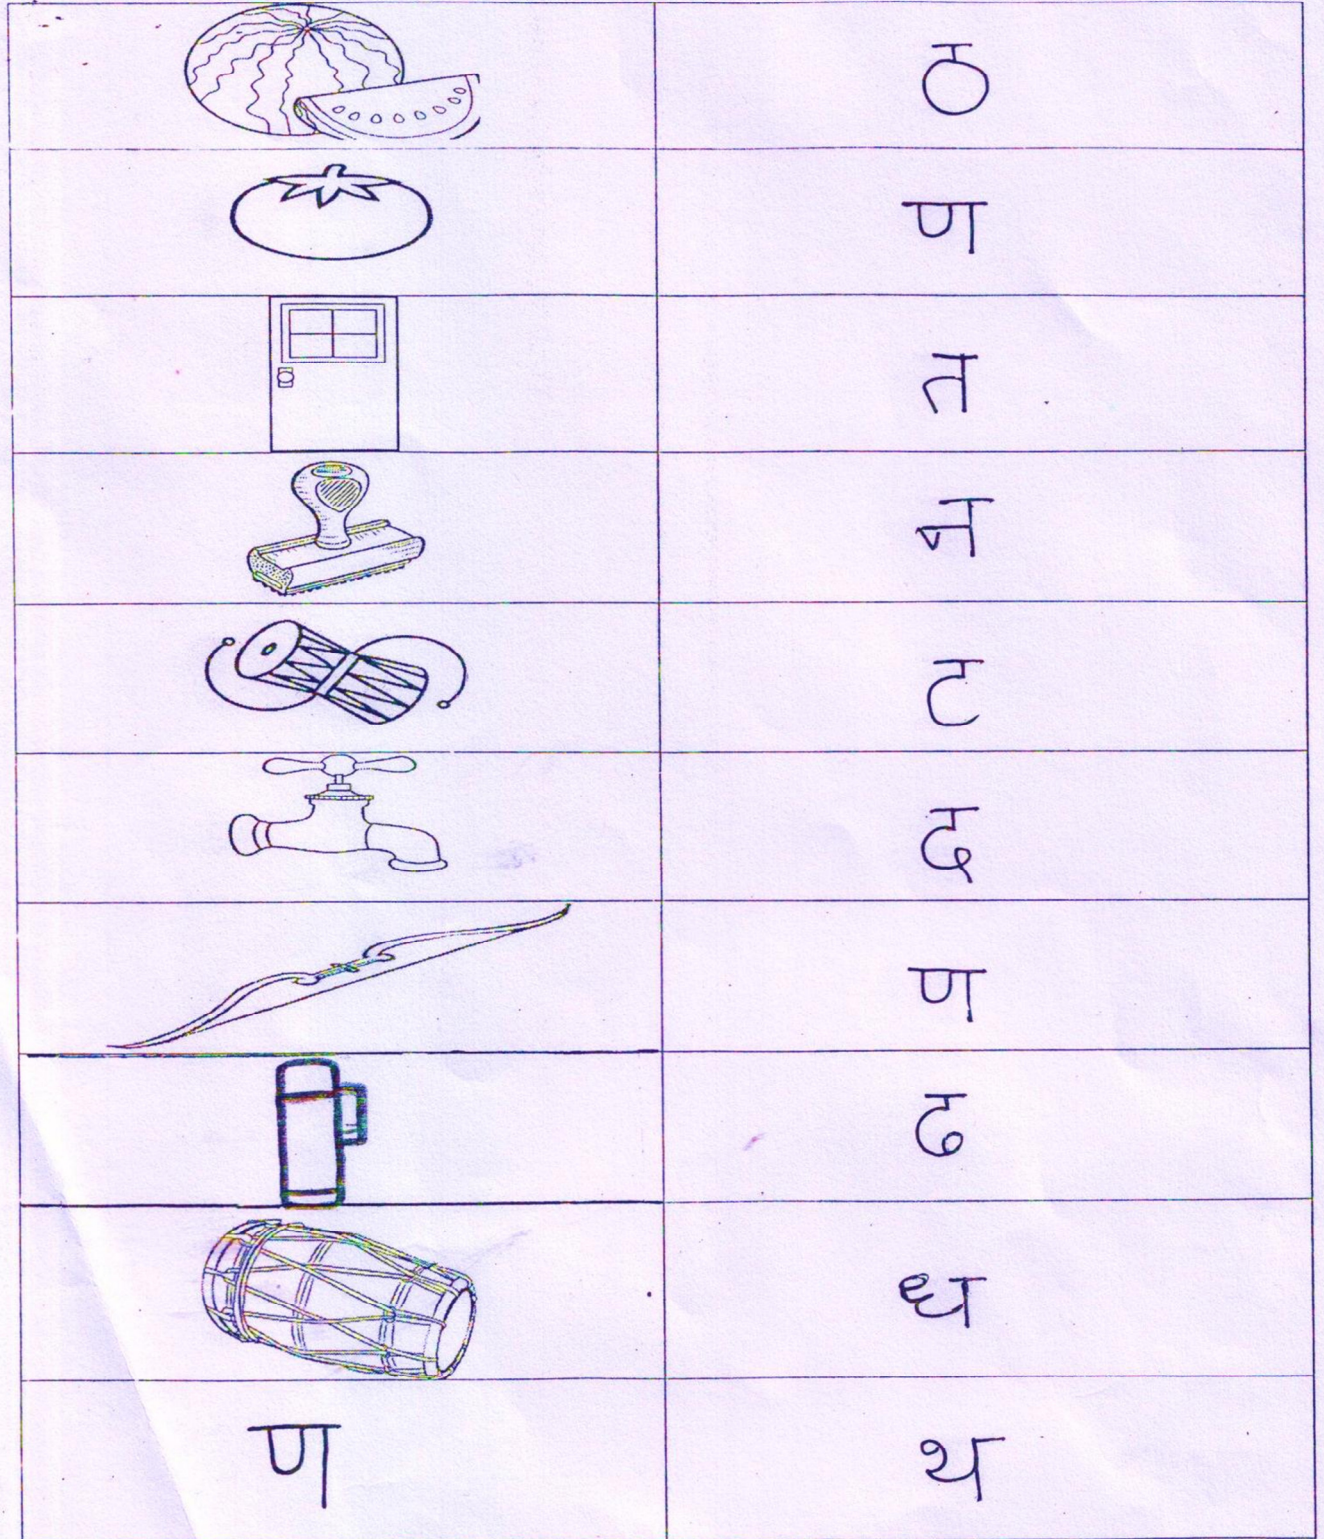 ठ
ण
त
न
ट
द
ण
ढ
ध
ण थ